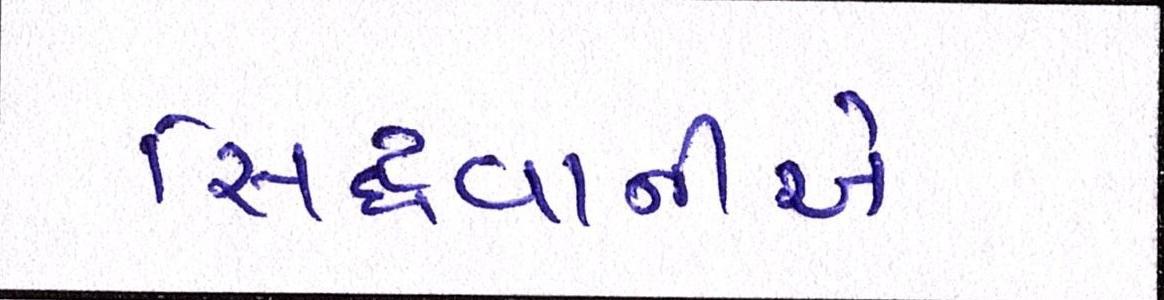 સિદ્ધવાનીએ